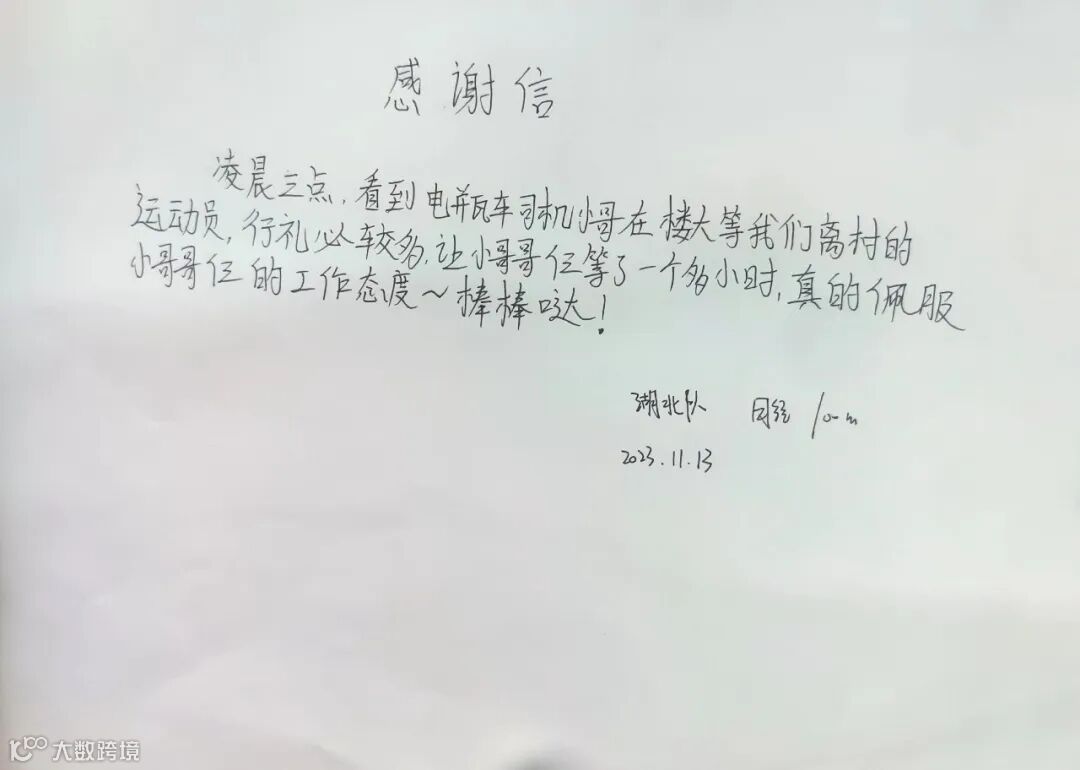 感谢信
凌晨三点，看到电瓶车司机小哥在楼大等我们离村的
运动员，行礼必较多，让小哥哥们等了一个多小时，真的佩服
小哥哥们的工作态度~棒棒哒！
湖北队 田径 100m
2023.11.13
大数跨境